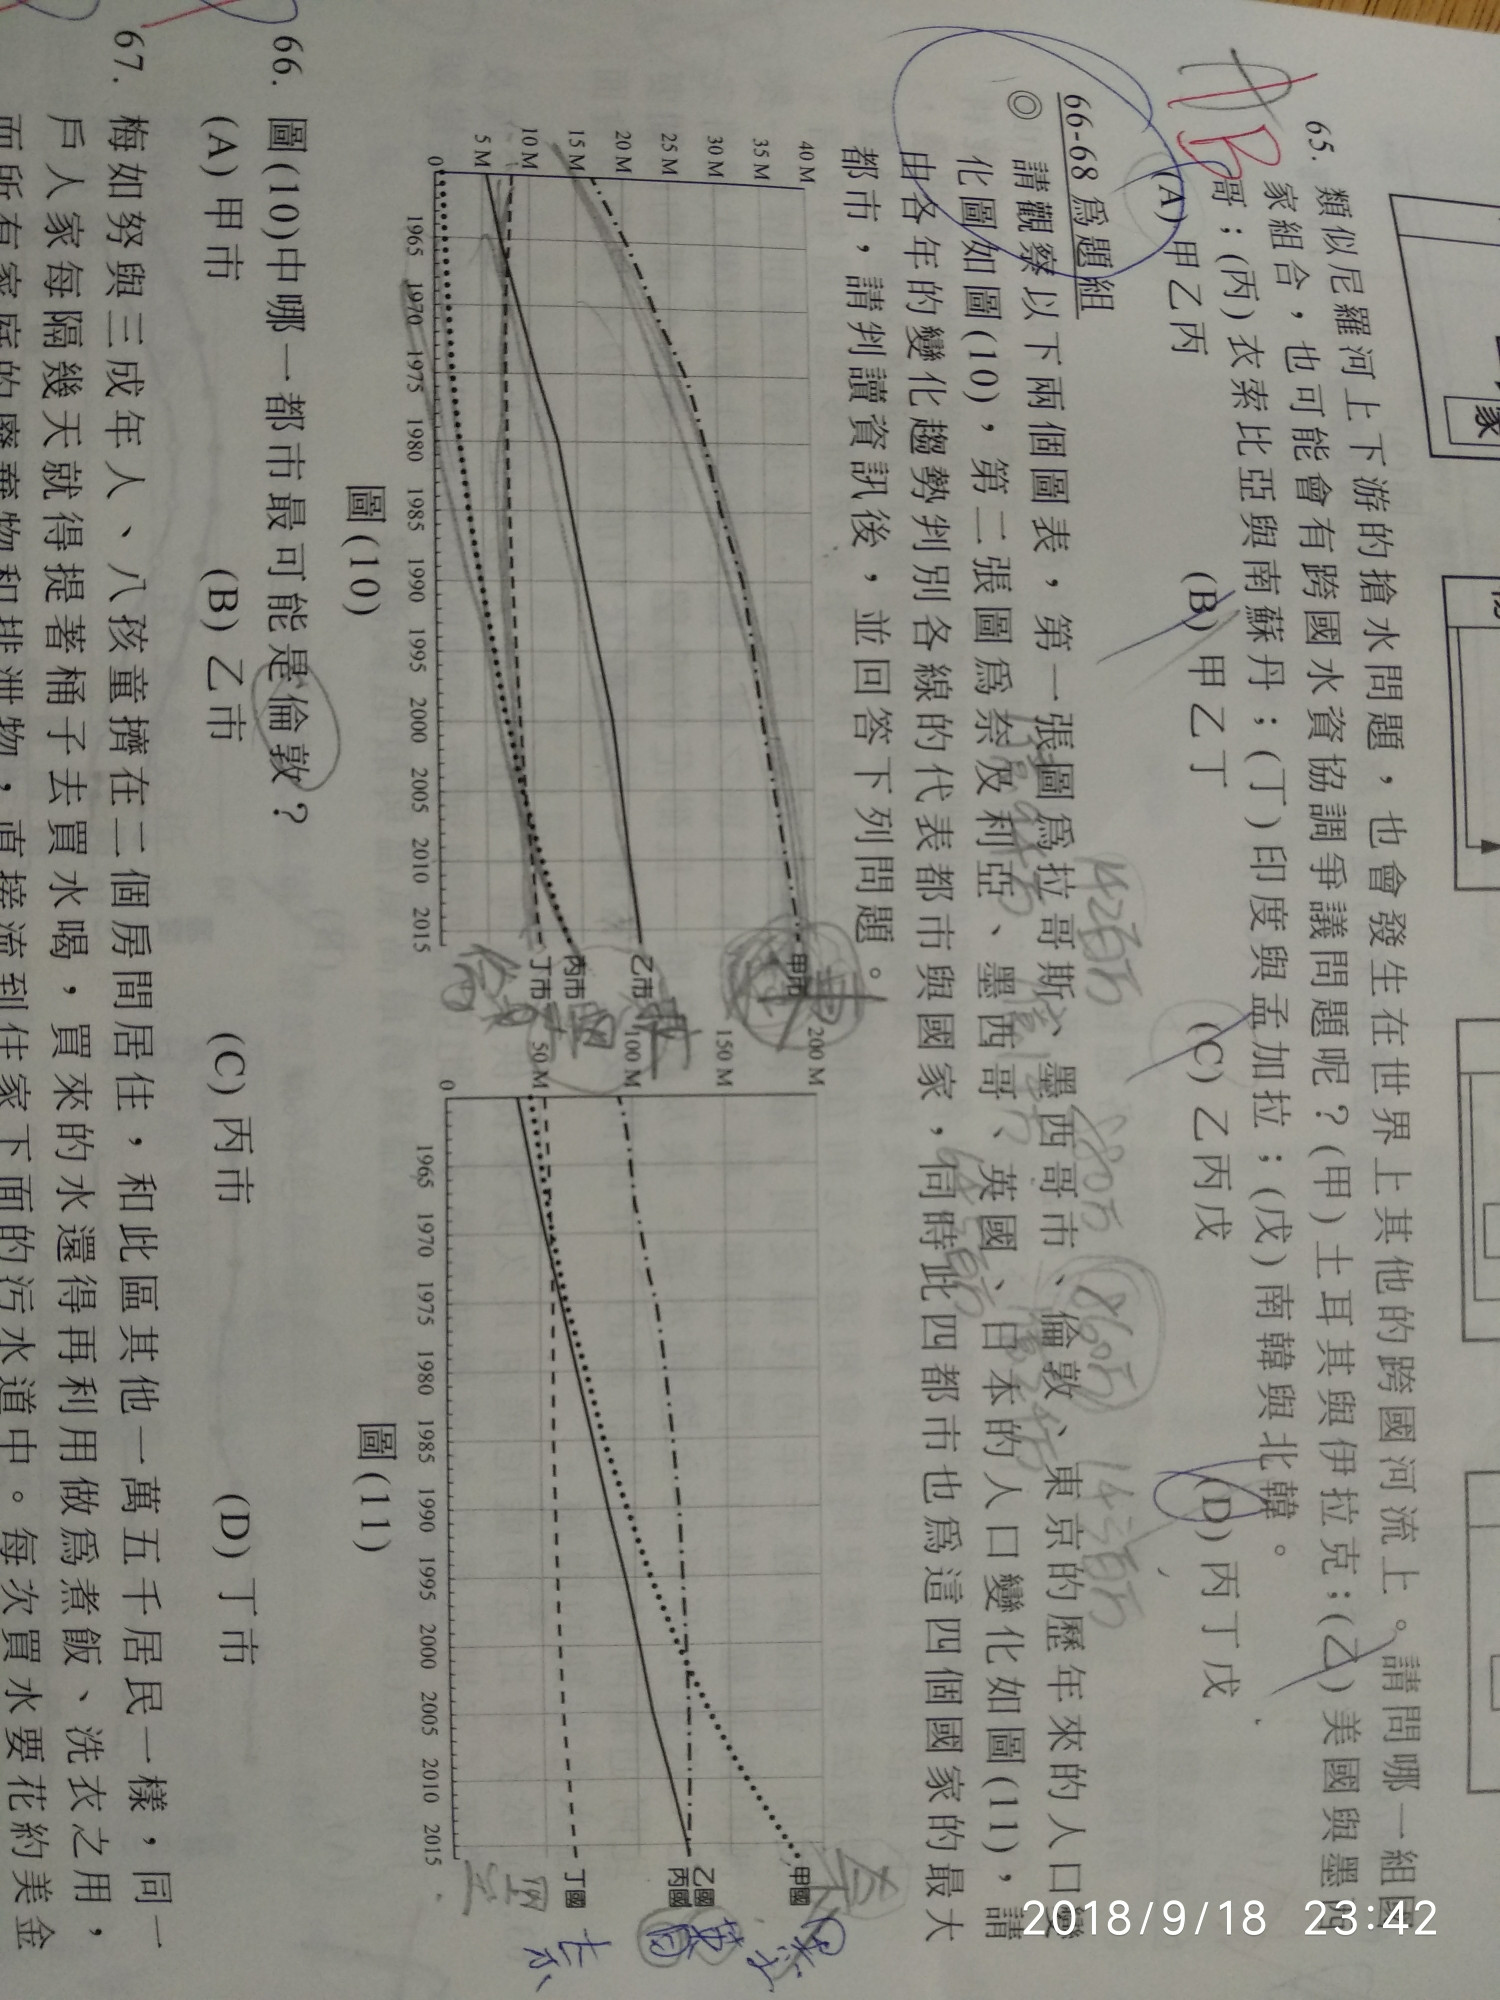 65. 類似尼羅河上下游的搶水問題，也會發生在世界上其他的跨國河流上。請問哪一組國
家組合，也可能會有跨國水資協調爭議問題呢？(甲)土耳其與伊拉克；(乙)美國與墨西
哥；(丙)衣索比亞與南蘇丹；(丁)印度與孟加拉；(戊)南韓與北韓。
(A) 甲乙丙 (B) 甲乙丁 (C) 乙丙戊 (D) 丙丁戊
A B
66-68 為題組
◎ 請觀察以下兩個圖表，第一張圖為拉哥斯、墨西哥市、倫敦、東京的歷年來的人口變
化圖如圖(10)，第二張圖為奈及利亞、墨西哥、英國、日本的人口變化如圖(11)，請
由各年的變化趨勢判別各線的代表都市與國家，同時此四都市也為這四個國家的最大
都市，請判讀資訊後，並回答下列問題。
40 M
35 M
30 M
25 M
20 M
15 M
10 M
5 M
0
1965 1970 1975 1980 1985 1990 1995 2000 2005 2010 2015
甲市
乙市
丙市
丁市
圖(10)
200 M
150 M
100 M
50 M
0
1965 1970 1975 1980 1985 1990 1995 2000 2005 2010 2015
甲國
乙國
丙國
丁國
圖(11)
66. 圖(10)中哪一都市最可能是倫敦？
(A) 甲市 (B) 乙市 (C) 丙市 (D) 丁市
67. 梅如努與三成年人、八孩童擠在二個房間居住，和此區其他一萬五千居民一樣，同一
戶人家每隔幾天就得提著桶子去買水喝，買來的水還得再利用做為煮飯、洗衣之用，
而所有家庭的廢棄物和排泄物，直接流到住家下面的污水道中。每次買水要花約美金
2018/9/18 23:42